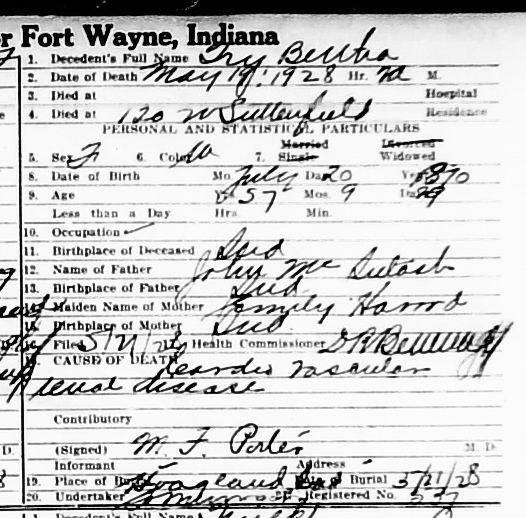 r Fort Wayne, Indiana
1. Decedent's Full Name Try Bertha
2. Date of Death May 19, 1928 Hr. M.
3. Died at Hospital
4. Died at 120 W Suttenfield Residence
PERSONAL AND STATISTICAL PARTICULARS
Married Divorced
5. Sex F 6. Color W 7. Single Widowed
8. Date of Birth Mo. July Da. 20 Yr. 1870
9. Age Yrs. 57 Mos. 9 Da. 29
Less than a Day Hrs. Min.
10. Occupation ✓
11. Birthplace of Deceased Ind
12. Name of Father John Mc Intosh
13. Birthplace of Father Ind
14. Maiden Name of Mother Emily Harrod
15. Birthplace of Mother Ind
Filed 5/21/28 Health Commissioner
CAUSE OF DEATH Cardio vascular
renal disease
Contributory
(Signed) M. F. Porter M. D.
Informant Address
19. Place of Burial Hoagland Ind Burial 5/21/28
20. Undertaker Registered No.
1. Decedent's Full Name